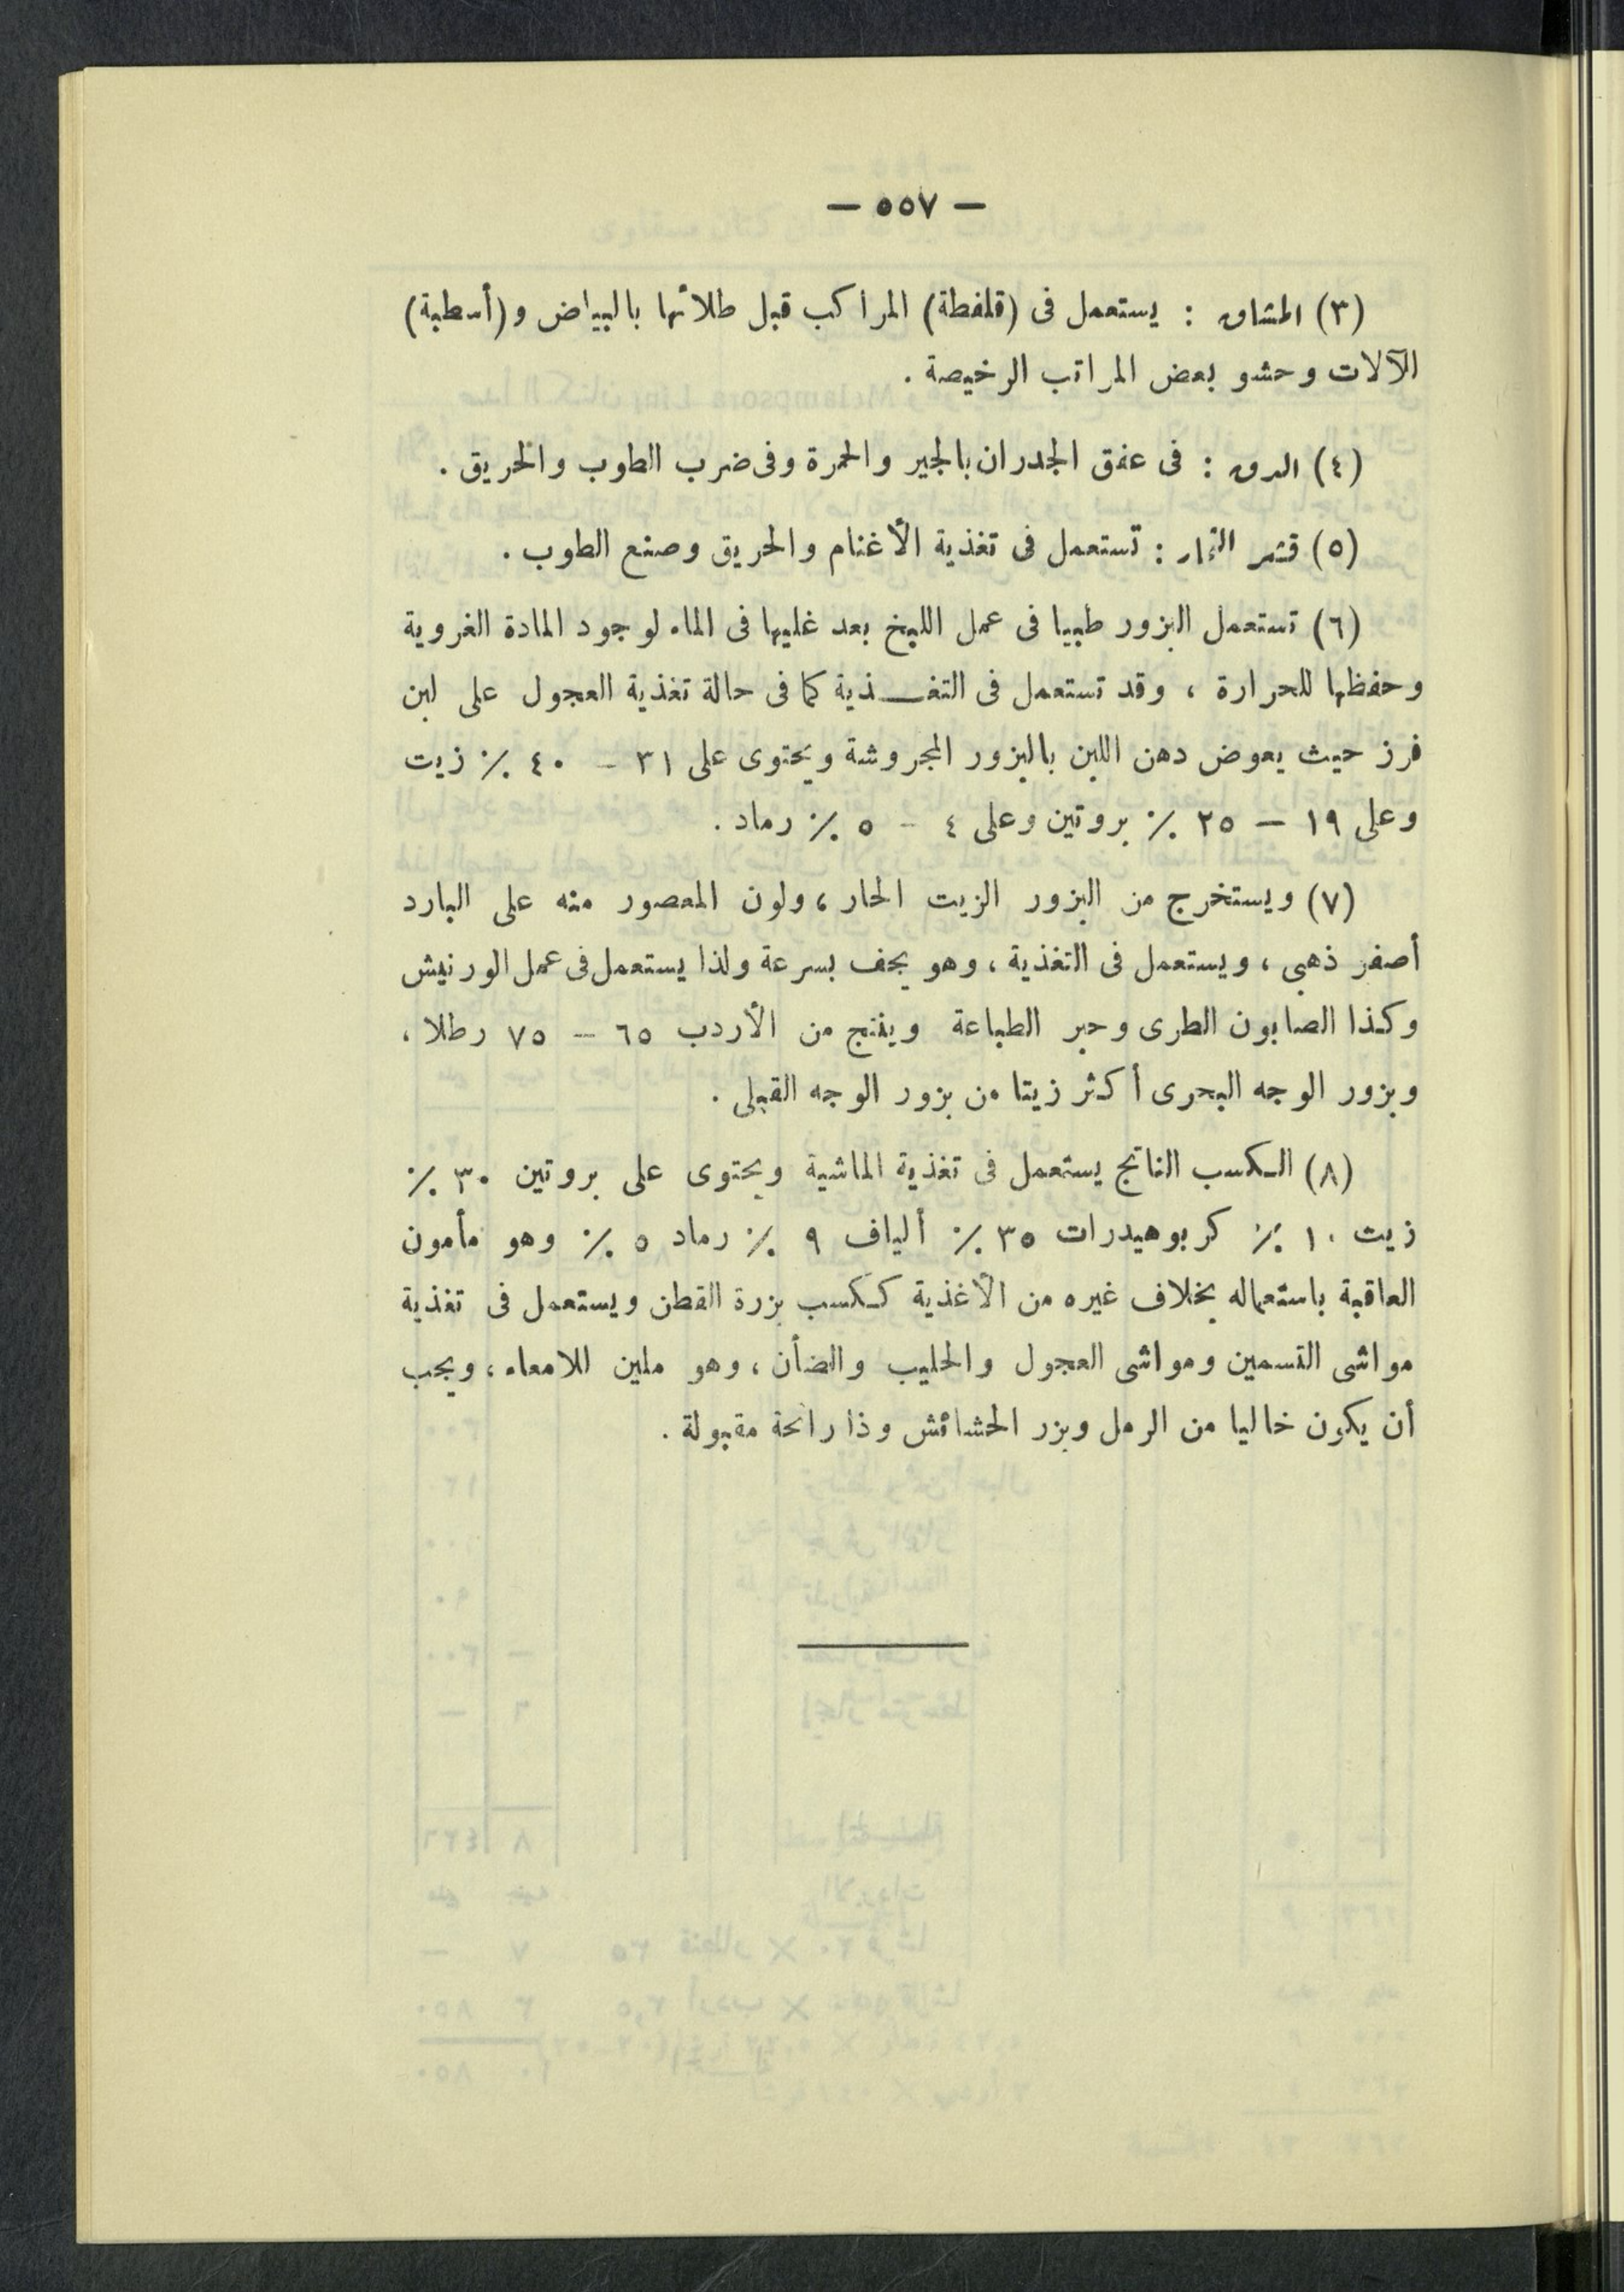 — ٥٥٧ —
(٣) المشاق : يستعمل فى (قلفطة) المراكب قبل طلائها بالبياض و (أسطبة)
الآلات وحشو بعض المراتب الرخيصة .
(٤) الدق : فى عفق الجدران بالجير والحمرة وفى ضرب الطوب والحريق .
(٥) قشر الثمار : تستعمل فى تغذية الأغنام والحريق وصنع الطوب .
(٦) تستعمل البزور طبيا فى عمل اللبخ بعد غليها فى الماء لوجود المادة الغروية
وحفظها للحرارة ، وقد تستعمل فى التغـــذية كما فى حالة تغذية العجول على لبن
فرز حيث يعوض دهن اللبن بالبزور المجروشة ويحتوى على ٣١ – ٤٠ ٪ زيت
وعلى ١٩ – ٢٥ ٪ بروتين وعلى ٤ – ٥ ٪ رماد .
(٧) ويستخرج من البزور الزيت الحار ، ولون المعصور منه على البارد
أصفر ذهبى ، ويستعمل فى التغذية ، وهو يجف بسرعة ولذا يستعمل فى عمل الورنيش
وكذا الصابون الطرى وحبر الطباعة وينتج من الأردب ٦٥ – ٧٥ رطلا ،
وبزور الوجه البحرى أكثر زيتا من بزور الوجه القبلى .
(٨) الكسب الناتج يستعمل فى تغذية الماشية ويحتوى على بروتين ٣٠ ٪
زيت ١٠ ٪ كربوهيدرات ٣٥ ٪ ألياف ٩ ٪ رماد ٥ ٪ وهو مأمون
العاقبة باستعماله بخلاف غيره من الأغذية ككسب بزرة القطن ويستعمل فى تغذية
مواشى التسمين ومواشى العجول والحليب والضأن ، وهو ملين للامعاء ، ويجب
أن يكون خاليا من الرمل وبزر الحشائش وذا رائحة مقبولة .